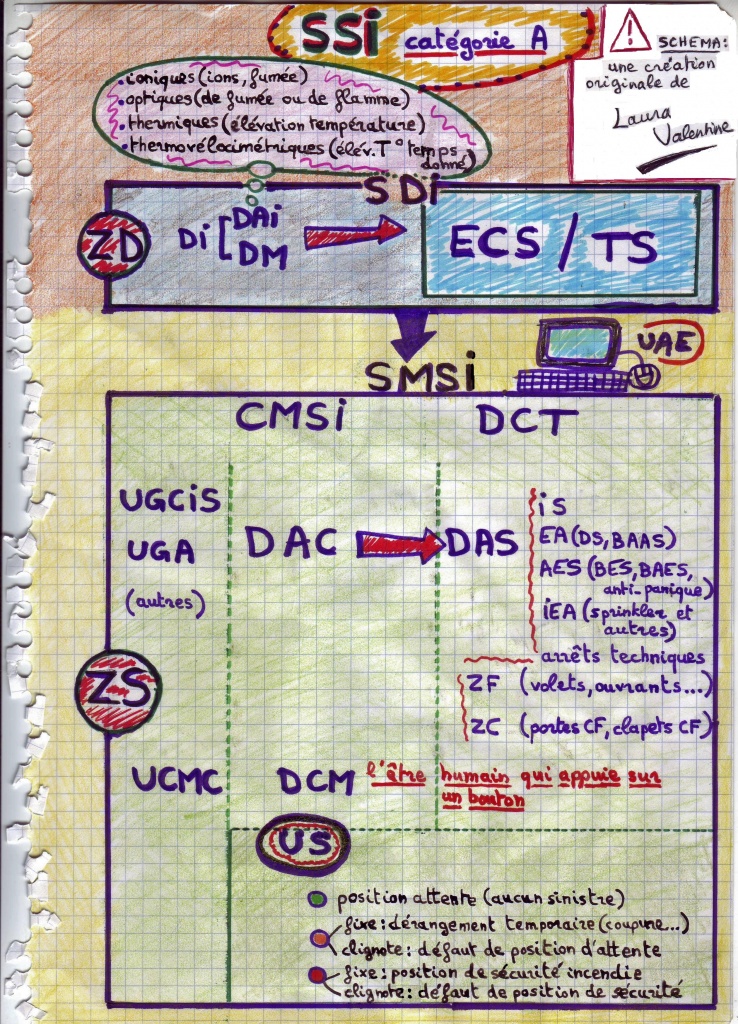 SSi catégorie A
⚠ SCHEMA:
une création
originale de
Laura
Valentine
.ioniques (ions, fumée)
.optiques (de fumée ou de flamme)
.thermiques (élévation température)
.thermovélocimétriques (élév. T° temps
donné)
SDi
ZD
Di [ DAi
DM
ECS / TS
SMSi
UAE
CMSi
DCT
UGCiS
UGA
(autres)
DAC
DAS
iS
EA (DS, BAAS)
AES (BES, BAES,
anti-panique)
iEA (sprinkler et
autres)
arrêts techniques
ZF (volets, ouvrants...)
ZC (portes CF, clapets CF)
ZS
UCMC
DCM
l'être humain qui appuie sur
un bouton
US
position attente (aucun sinistre)
fixe : dérangement temporaire (coupure...)
clignote : défaut de position d'attente
fixe : position de sécurité incendie
clignote : défaut de position de sécurité